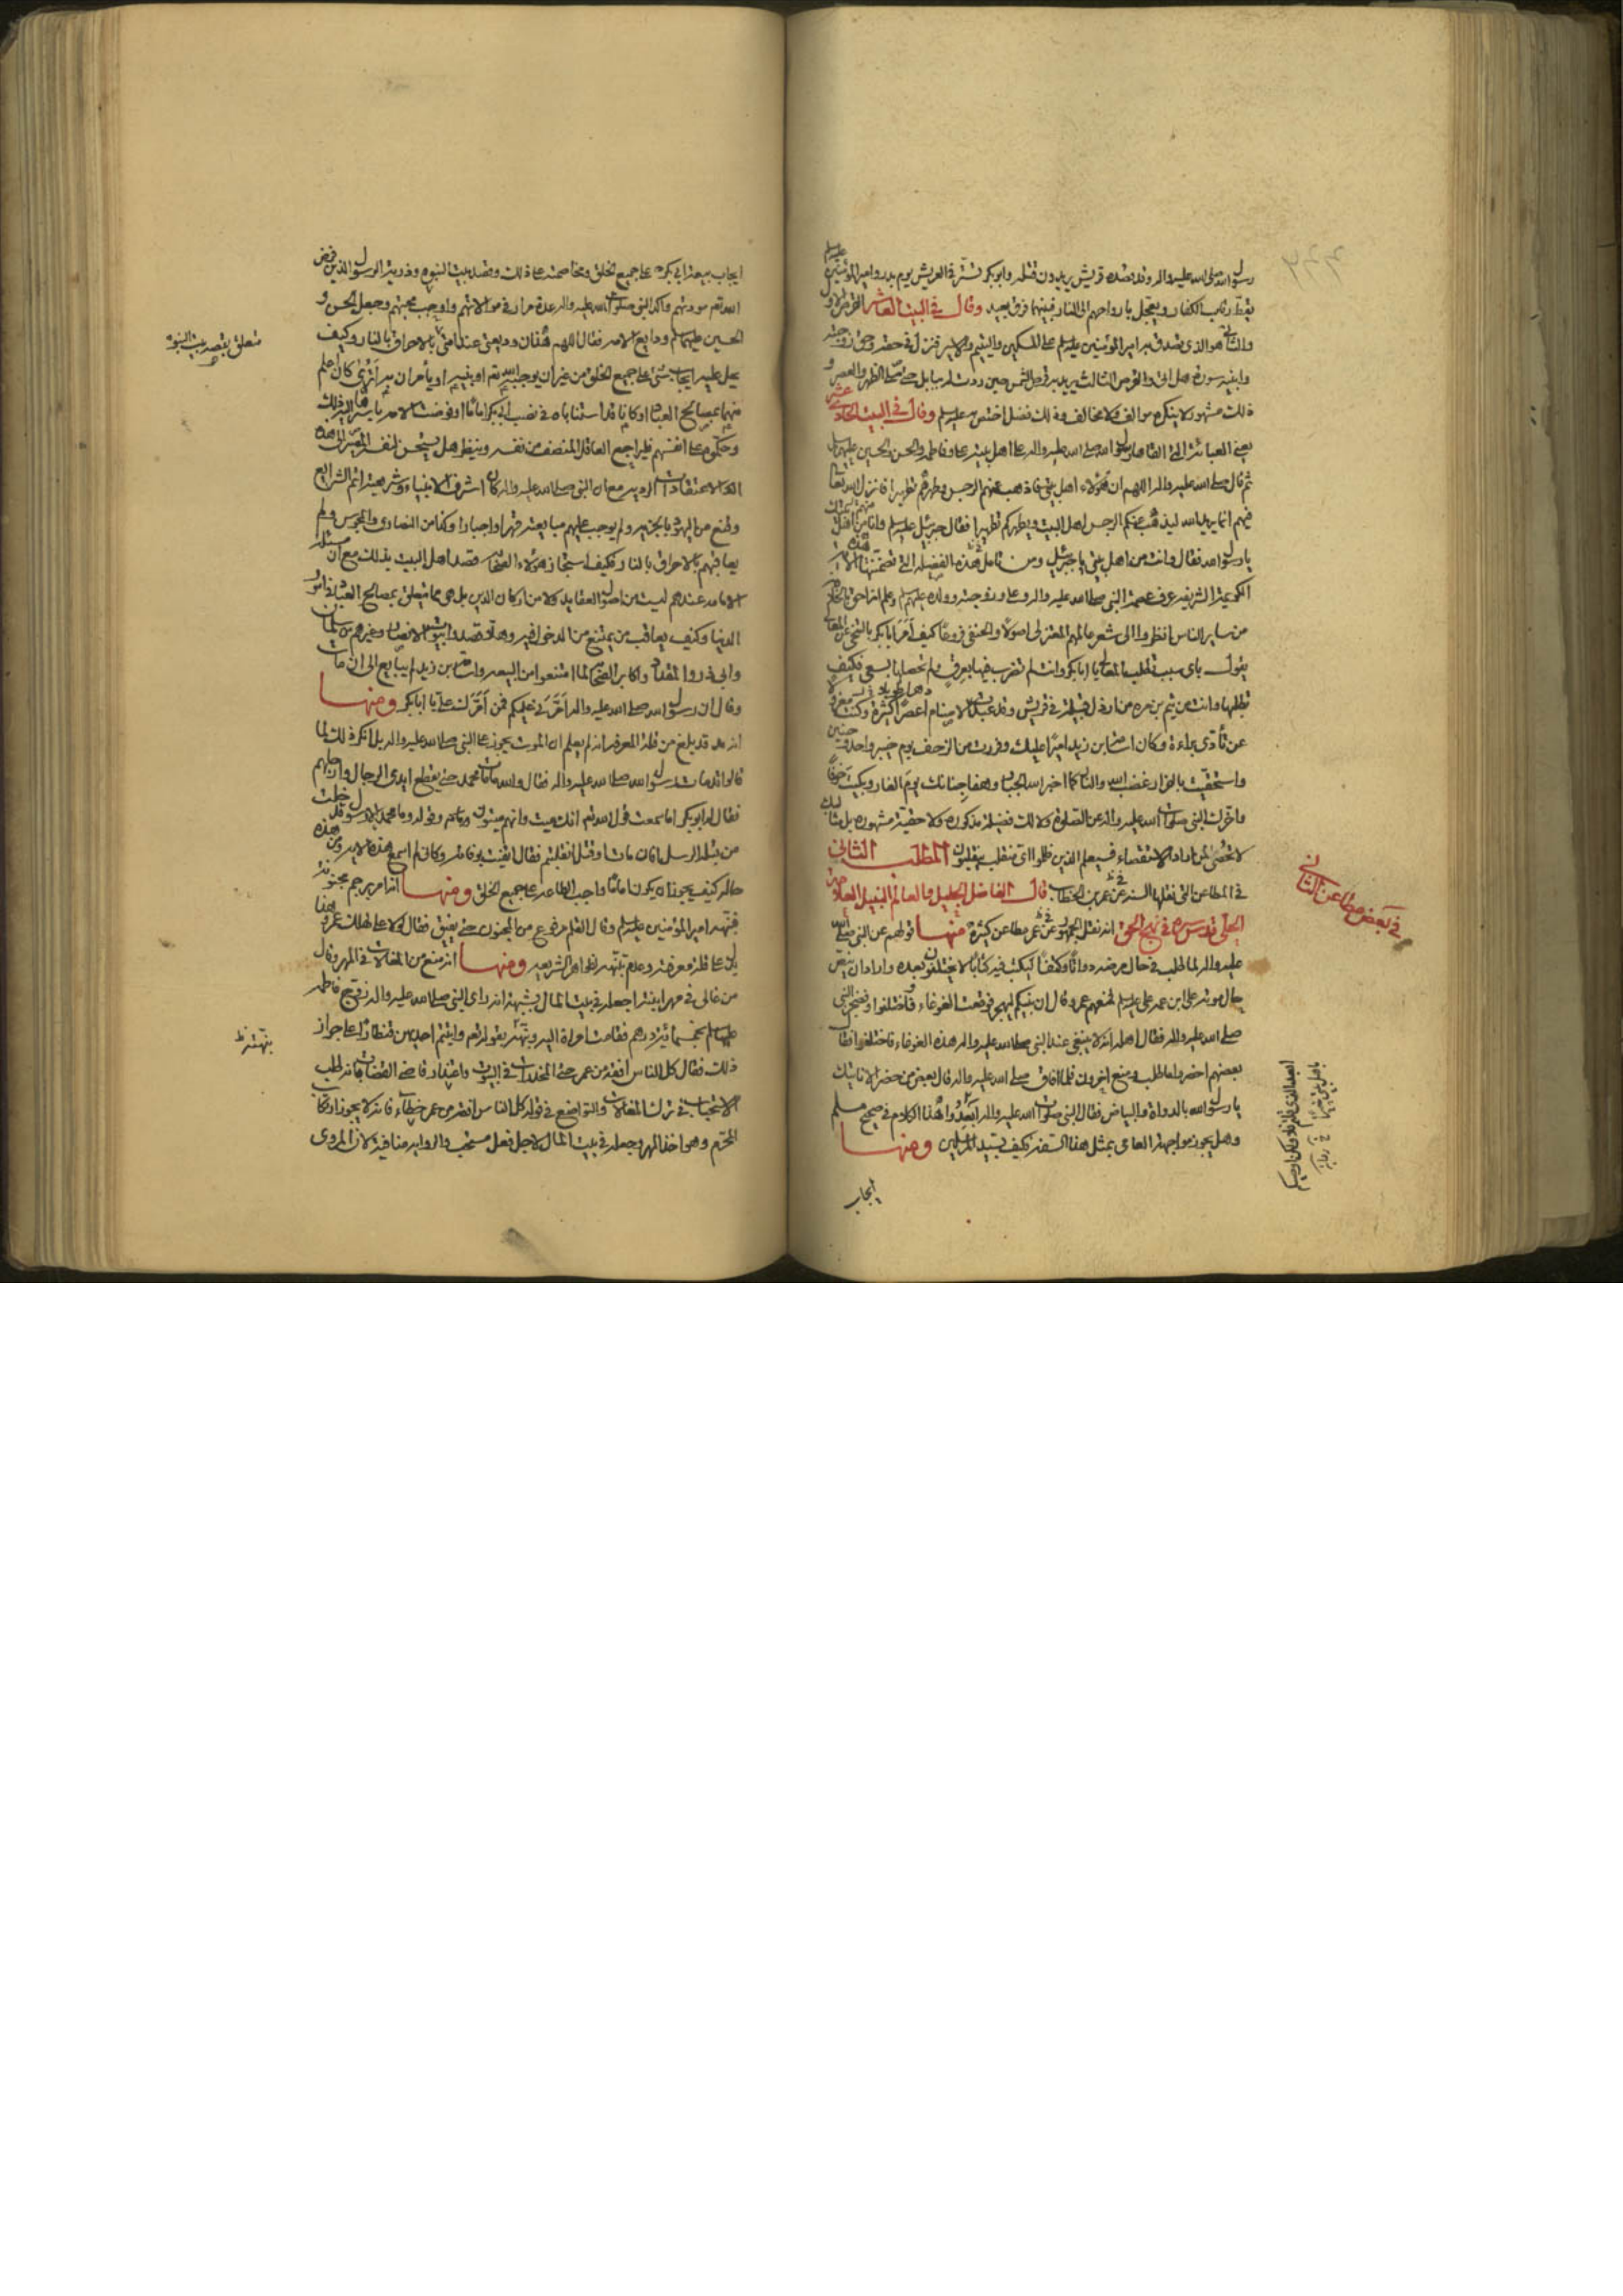 رسول الله صلى الله عليه واله وقد قصده قريش يريدون قتله وابو بكر في العريش يوم بدر وامير المؤمنين عليه السلم
يقط رقاب الكفار ويعجل بارواحهم الى النار فبينهما فرق بعيد وقال في البيت العاشر القرص الاول
والثاني هو الذي تصدق به امير المؤمنين عليه السلم على المسكين واليتيم والاسير فنزل في حقه وحق زوجته
وابنيه سورة هل اتى والقرص الثالث يريد به قرص الشمس حين ردت له ببابل حتى صلى الظهر والعصر و
ذلك مشهور لا ينكره موالف ولا مخالف وذلك فضل اختص به عليه السلم وقال في البيت الحادي عشر
يعني العباءة التي القاها رسول الله صلى الله عليه واله على اهل بيته علي وفاطمة والحسن والحسين عليهم السلم
ثم قال صلى الله عليه واله اللهم ان هؤلاء اهل بيتي فاذهب عنهم الرجس وطهرهم تطهيرا فانزل الله تعالى
فيهم انما يريد الله ليذهب عنكم الرجس اهل البيت ويطهركم تطهيرا فقال جبرئيل عليه السلم وانا من اهلك
يا رسول الله فقال وانت من اهل بيتي يا جبرئيل ومن تامل هذه الفضيلة التي تضمنتها هذه الاية
الكريمة الشريفة عرف عصمة النبي صلى الله عليه واله وعلي وزوجته وولده عليهم السلم وعلم انه احق بالخلافة
من ساير الناس انظروا الى شعر عالمهم المعتزلي اصولا والحنفي فروعا كيف ابا بكر بالتنحي عن المعالي
يقول باي سبب تطلب المعالي يا ابا بكر وانت لم تضرب فيها بعرق ولم تحصلها بالسعي فكيف
تطلبها وانت من تيم بن مرة من ارذل قبيلة في قريش وقد عبدت الاصنام اعصرا كثيرة وكنت معزولا
عن تأدي براءة وكان اسامة ابن زيد اميرا عليك وفررت من الزحف يوم خيبر واحد وحنين
واستحقيت بالفرار غضب الله والنار كما اخبر الله الجبار وهفا جنانك يوم الغار وبكيت خوفا
واخرك النبي صلوات الله عليه واله عن الصلوة ولا لك فضيلة مذكورة ولا حقيقة مشهورة بل مثالبك
لا تحصى لمن اراد الاستقصاء وسيعلم الذين ظلموا اي منقلب ينقلبون المطلب الثاني
في المطاعن التي نقلها السنة عن عمر بن الخطاب قال الفاضل الجليل والعالم النبيل العلامة
الحلي قدس سره في نهج الحق انه نقل الجمهور عن عمر مطاعن كثيرة منها قولهم عن النبي صلى الله
عليه واله لما طلب في حال مرضه دواتا وكتفا ليكتب فيه كتابا لا يختلفون بعده واراد ان ينص
حال موته على ابن عمه علي عليه السلم فمنعهم عمر وقال ان نبيكم ليهجر فوقعت الغوغاء واختلفوا وضجر النبي
صلى الله عليه واله فقال اهله انه لا ينبغي عند النبي صلى الله عليه واله هذه الغوغاء فاختلفوا فقال
بعضهم احضروا ما طلب ومنع اخرون فلما افاق صلى الله عليه واله قال بعض من حضر الا ناتيك
يا رسول الله بالدواة والبياض فقال النبي صلوات الله عليه واله ابعدوا هذا الكلام في صحيح مسلم
وهل يجوز مواجهة العامي بمثل هذا السفه فكيف بسيد المرسلين ومنها
ايجاب
في بعض مطاعن الثاني
ايجاب بيعة ابي بكر على جميع الخلق ومخاصمته على ذلك وقصد بيت النبوة وذرية الرسول الذين فرض
الله تعالى مودتهم واكد النبي صلوات الله عليه واله عدة مرار في موالاتهم واوجب محبتهم وجعل الحسن و
الحسين عليهما السلم ودايع الامة فقال اللهم هذان وديعتي عند امتي بالاحراق بالنار وكيف
يحل عليه ايجاب شيء على جميع الخلق من غير ان يوجبه الله تعالى او نبيه او يأمران به اترى كان اعلم
منهما بمصالح العباد او كانا قد استناباه في نصب ابي بكر اماما او فوضت الامة باسرها اليه ذلك
وحكموه على انفسهم فليراجع العاقل المنصف من نفسه وينظر هل يستحسن لنفسه المصير الى هذه
الاعتقادات الردية مع ان النبي صلى الله عليه واله كان اشرف الانبياء وشريعته اتم الشرايع
وقنع من اليهود بالجزية ولم يوجب عليهم مبايعته قهرا واجبارا وكذا من النصارى والمجوس ولم
يعاقبهم بالاحراق بالنار فكيف استجاز هؤلاء الصحابة قصد اهل البيت بذلك مع ان مسئلة
الامامة عندهم ليست من اصول العقايد ولا من اركان الدين بل هي مما يتعلق بمصالح العباد في امور
الدنيا وكيف يعاقب من يمتنع من الدخول فيه وهلا قصد وابيوت الانصار وغيرهم من سلمان
وابي ذر والمقداد واكابر الصحابة لما امتنعوا من البيعة واسامة بن زيد لم يبايع الى ان مات
وقال ان رسول الله صلى الله عليه واله امرني عليكم فمن امرك علي يا ابا بكر ومنها
انه قد بلغ من قلة المعرفة انه لم يعلم ان الموت يجوز على النبي صلى الله عليه واله بل انكر ذلك لما
قالوا قد مات رسول الله صلى الله عليه واله فقال والله ما مات محمد حتى يقطع ايدي الرجال وارجلهم
فقال له ابو بكر اما سمعت قول الله تعالى انك ميت وانهم ميتون وقوله وما محمد الا رسول قد خلت
من قبله الرسل افان مات او قتل انقلبتم فقال ايقنت بوفاته وكاني لم اسمع هذه الاية ومن هذه
حاله كيف يجوز ان يكون اماما واجب الطاعة على جميع الخلق ومنها انه امر برجم مجنونة
فنبهه امير المؤمنين عليه السلم وقال القلم مرفوع عن المجنون حتى يفيق فقال لولا علي لهلك عمر وهذا
يدل على قلة معرفته وعدم تنبهه لظواهر الشريعة ومنها انه منع من المغالات في المهر وقال
من غالى في مهر ابنته اجعله في بيت المال بشبهة انه راى النبي صلى الله عليه واله زوج فاطمة
عليها السلم بخمسمائة درهم فقامت امراة اليه ونبهته بقوله تعالى واتيتم احديهن قنطارا على جواز
ذلك فقال كل الناس افقه من عمر حتى المخدرات في البيوت واعتذار قاضي القضات بانه طلب
الاستحباب في ترك المغالات والتواضع في قوله كل الناس افقه من عمر خطاء فانه لا يجوز ارتكاب
المحرم وهو اخذ المهر وجعله في بيت المال لاجل فعل مستحب والرواية منافية لان المروي
متعلق بقصد بيت النبوة